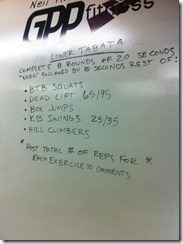 Neil
GPP fitness
LOWER TABATA
COMPLETE 8 ROUNDS OF 20 SECONDS
"WORK" FOLLOWED BY 10 SECONDS REST OF:
• BTB SQUATS
• DEAD LIFT 65/95
• BOX JUMPS
• KB SWINGS 25/35
• HILL CLIMBERS
* POST TOTAL # OF REPS FOR *
EACH EXERCISE TO COMMENTS